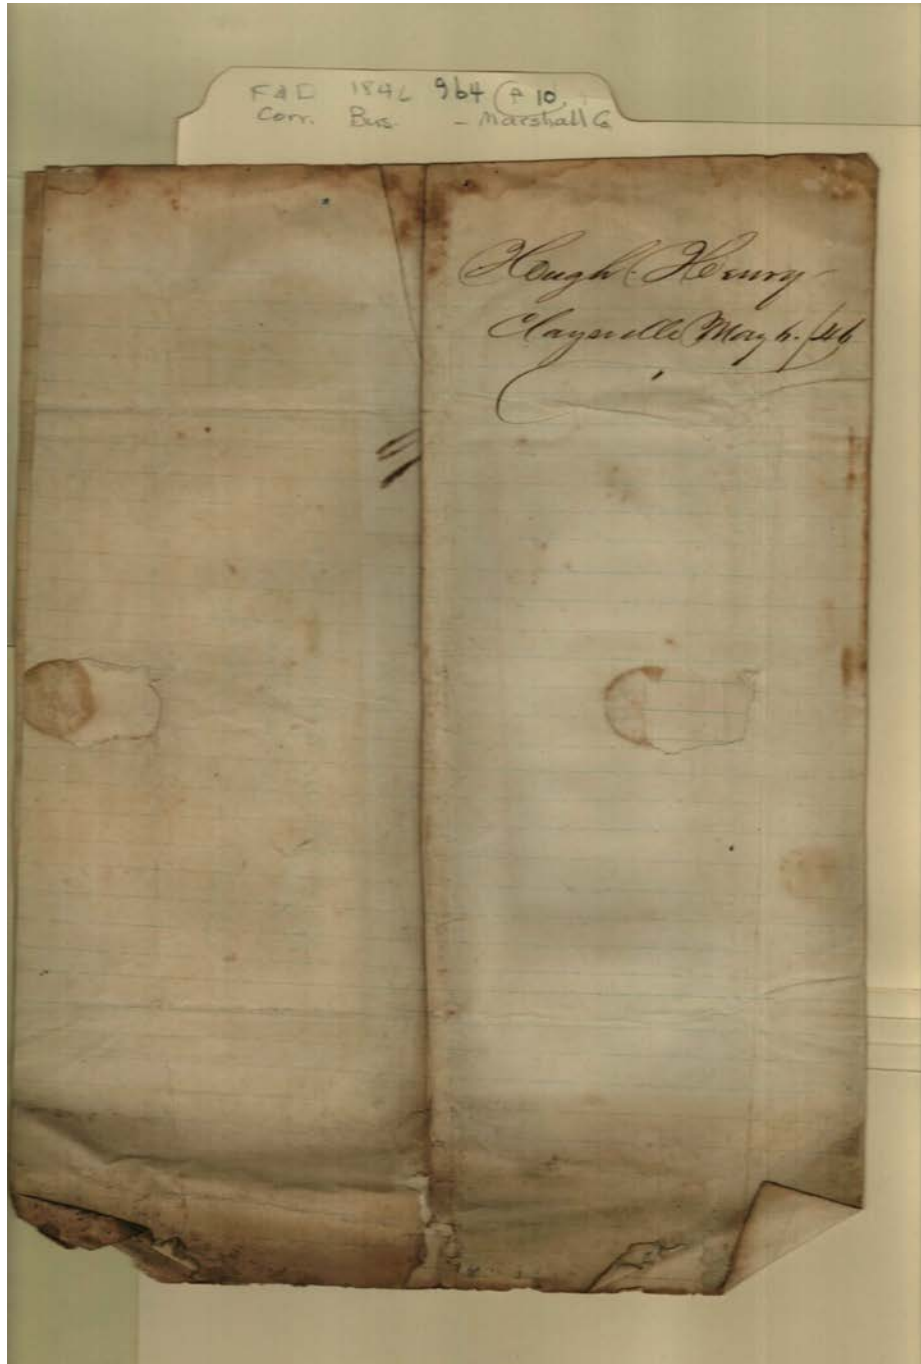 F&D 1846 964 P 10
Corr. Bus. - Marshall Co
Hugh Henry
Claysville May 6. /46